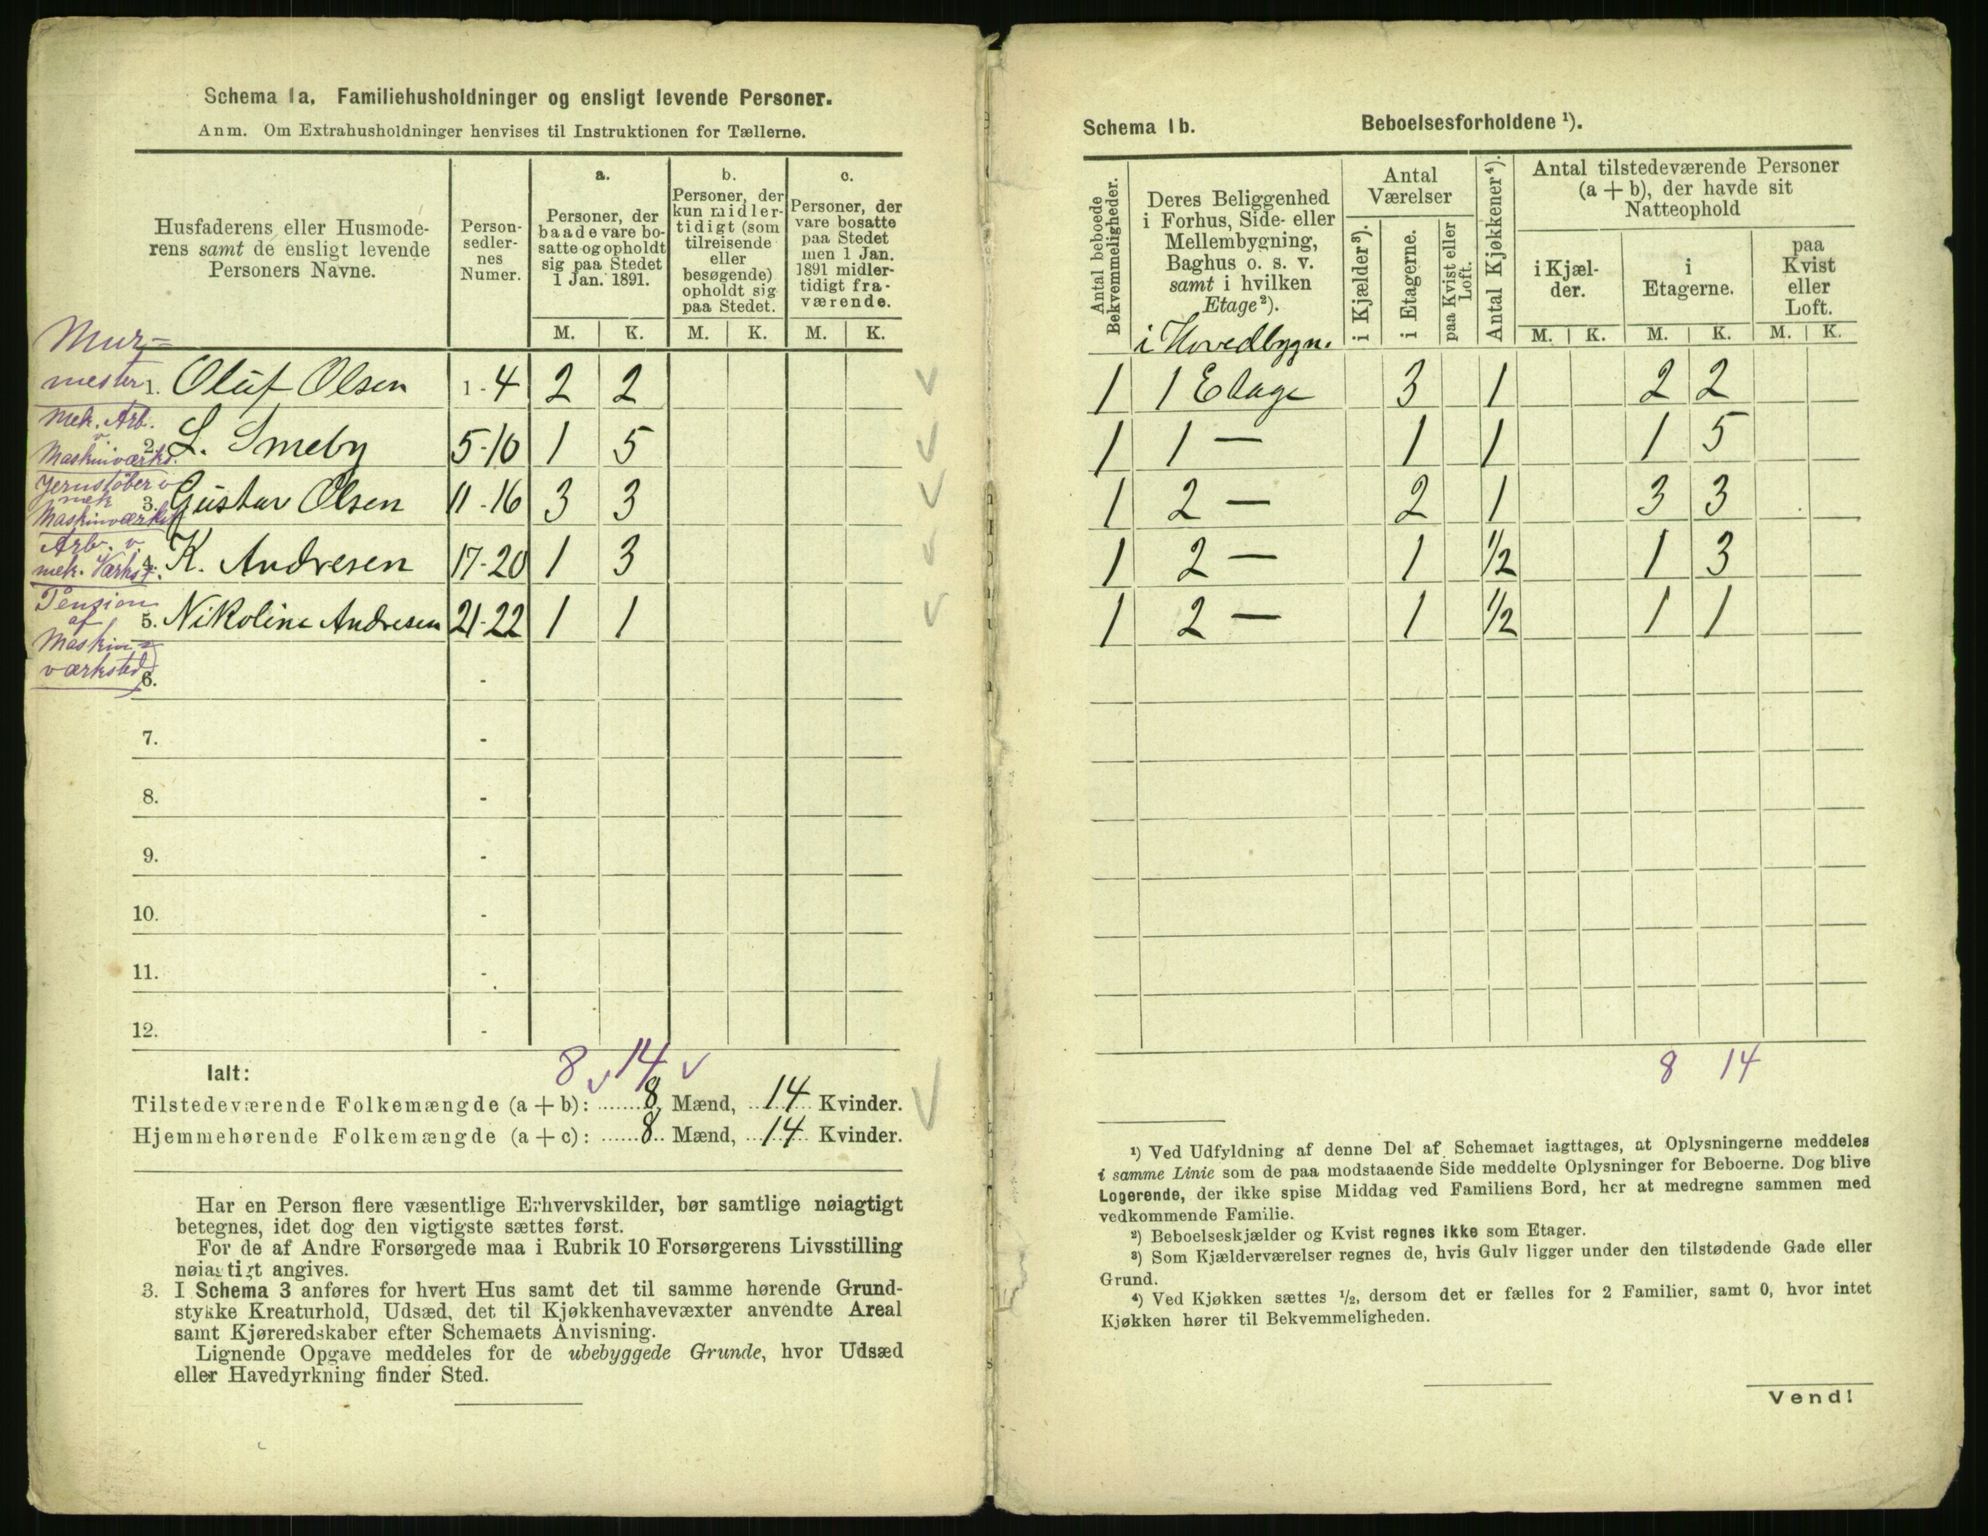 Schema 1a. Familiehusholdninger og ensligt levende Personer.
Anm. Om Extrahusholdninger henvises til Instruktionen for Tællerne.
Husfaderens eller Husmoderens samt de ensligt levende Personers Navne.
Personsedlernes Numer.
a.
Personer, der baade vare bosatte og opholdt sig paa Stedet 1 Jan. 1891.
b.
Personer, der kun midlertidigt (som tilreisende eller besøgende) opholdt sig paa Stedet.
c.
Personer, der vare bosatte paa Stedet men 1 Jan. 1891 midlertidigt fraværende.
M. K. M. K. M. K.
Murmester 1. Oluf Olsen 1-4 2 2
Mek. Arb. v. Maskinværks. 2. L. Smeby 5-10 1 5
Jernstøber v mek Maskinværkst 3. Gustav Olsen 11-16 3 3
Arb. v. mek. Værkst. 4. K. Andresen 17-20 1 3
Pension af Maskinværksted 5. Nikoline Andresen 21-22 1 1
6. -
7. -
8. -
9. -
10. -
11. -
12. -
8 14
Ialt:
Tilstedeværende Folkemængde (a + b): 8 Mænd, 14 Kvinder.
Hjemmehørende Folkemængde (a + c): 8 Mænd, 14 Kvinder.
Har en Person flere væsentlige Erhvervskilder, bør samtlige nøiagtigt
betegnes, idet dog den vigtigste sættes først.
For de af Andre Forsørgede maa i Rubrik 10 Forsørgerens Livsstilling
nøiagtigt angives.
3. I Schema 3 anføres for hvert Hus samt det til samme hørende Grund-
stykke Kreaturhold, Udsæd, det til Kjøkkenhavevæxter anvendte Areal
samt Kjøreredskaber efter Schemaets Anvisning.
Lignende Opgave meddeles for de ubebyggede Grunde, hvor Udsæd
eller Havedyrkning finder Sted.
Schema 1b. Beboelsesforholdene ¹).
Antal beboede Bekvemmeligheder.
Deres Beliggenhed i Forhus, Side- eller Mellembygning, Baghus o. s. v. samt i hvilken Etage²).
Antal Værelser
i Kjælder³).
i Etagerne.
paa Kvist eller Loft.
Antal Kjøkkener⁴).
Antal tilstedeværende Personer (a + b), der havde sit Natteophold
i Kjælder.
i Etagerne.
paa Kvist eller Loft.
M. K. M. K. M. K.
i Hovedbygn.
1 1 Etage 3 1 2 2
1 1 — 1 1 1 5
1 2 — 2 1 3 3
1 2 — 1 ½ 1 3
1 2 — 1 ½ 1 1
8 14
¹) Ved Udfyldning af denne Del af Schemaet iagttages, at Oplysningerne meddeles
i samme Linie som de paa modstaaende Side meddelte Oplysninger for Beboerne. Dog blive
Logerende, der ikke spise Middag ved Familiens Bord, her at medregne sammen med
vedkommende Familie.
²) Beboelseskjælder og Kvist regnes ikke som Etager.
³) Som Kjælderværelser regnes de, hvis Gulv ligger under den tilstødende Gade eller
Grund.
⁴) Ved Kjøkken sættes ½, dersom det er fælles for 2 Familier, samt 0, hvor intet
Kjøkken hører til Bekvemmeligheden.
Vend!